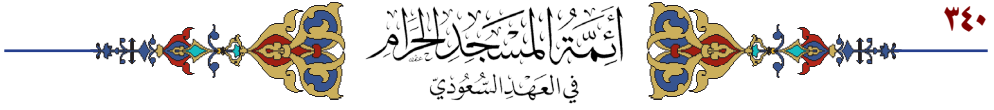 ٣٤٠
أَئِمَّةُ المَسْجِدِ الحَرَامِ
في العَهْدِ السُّعُودِيّ